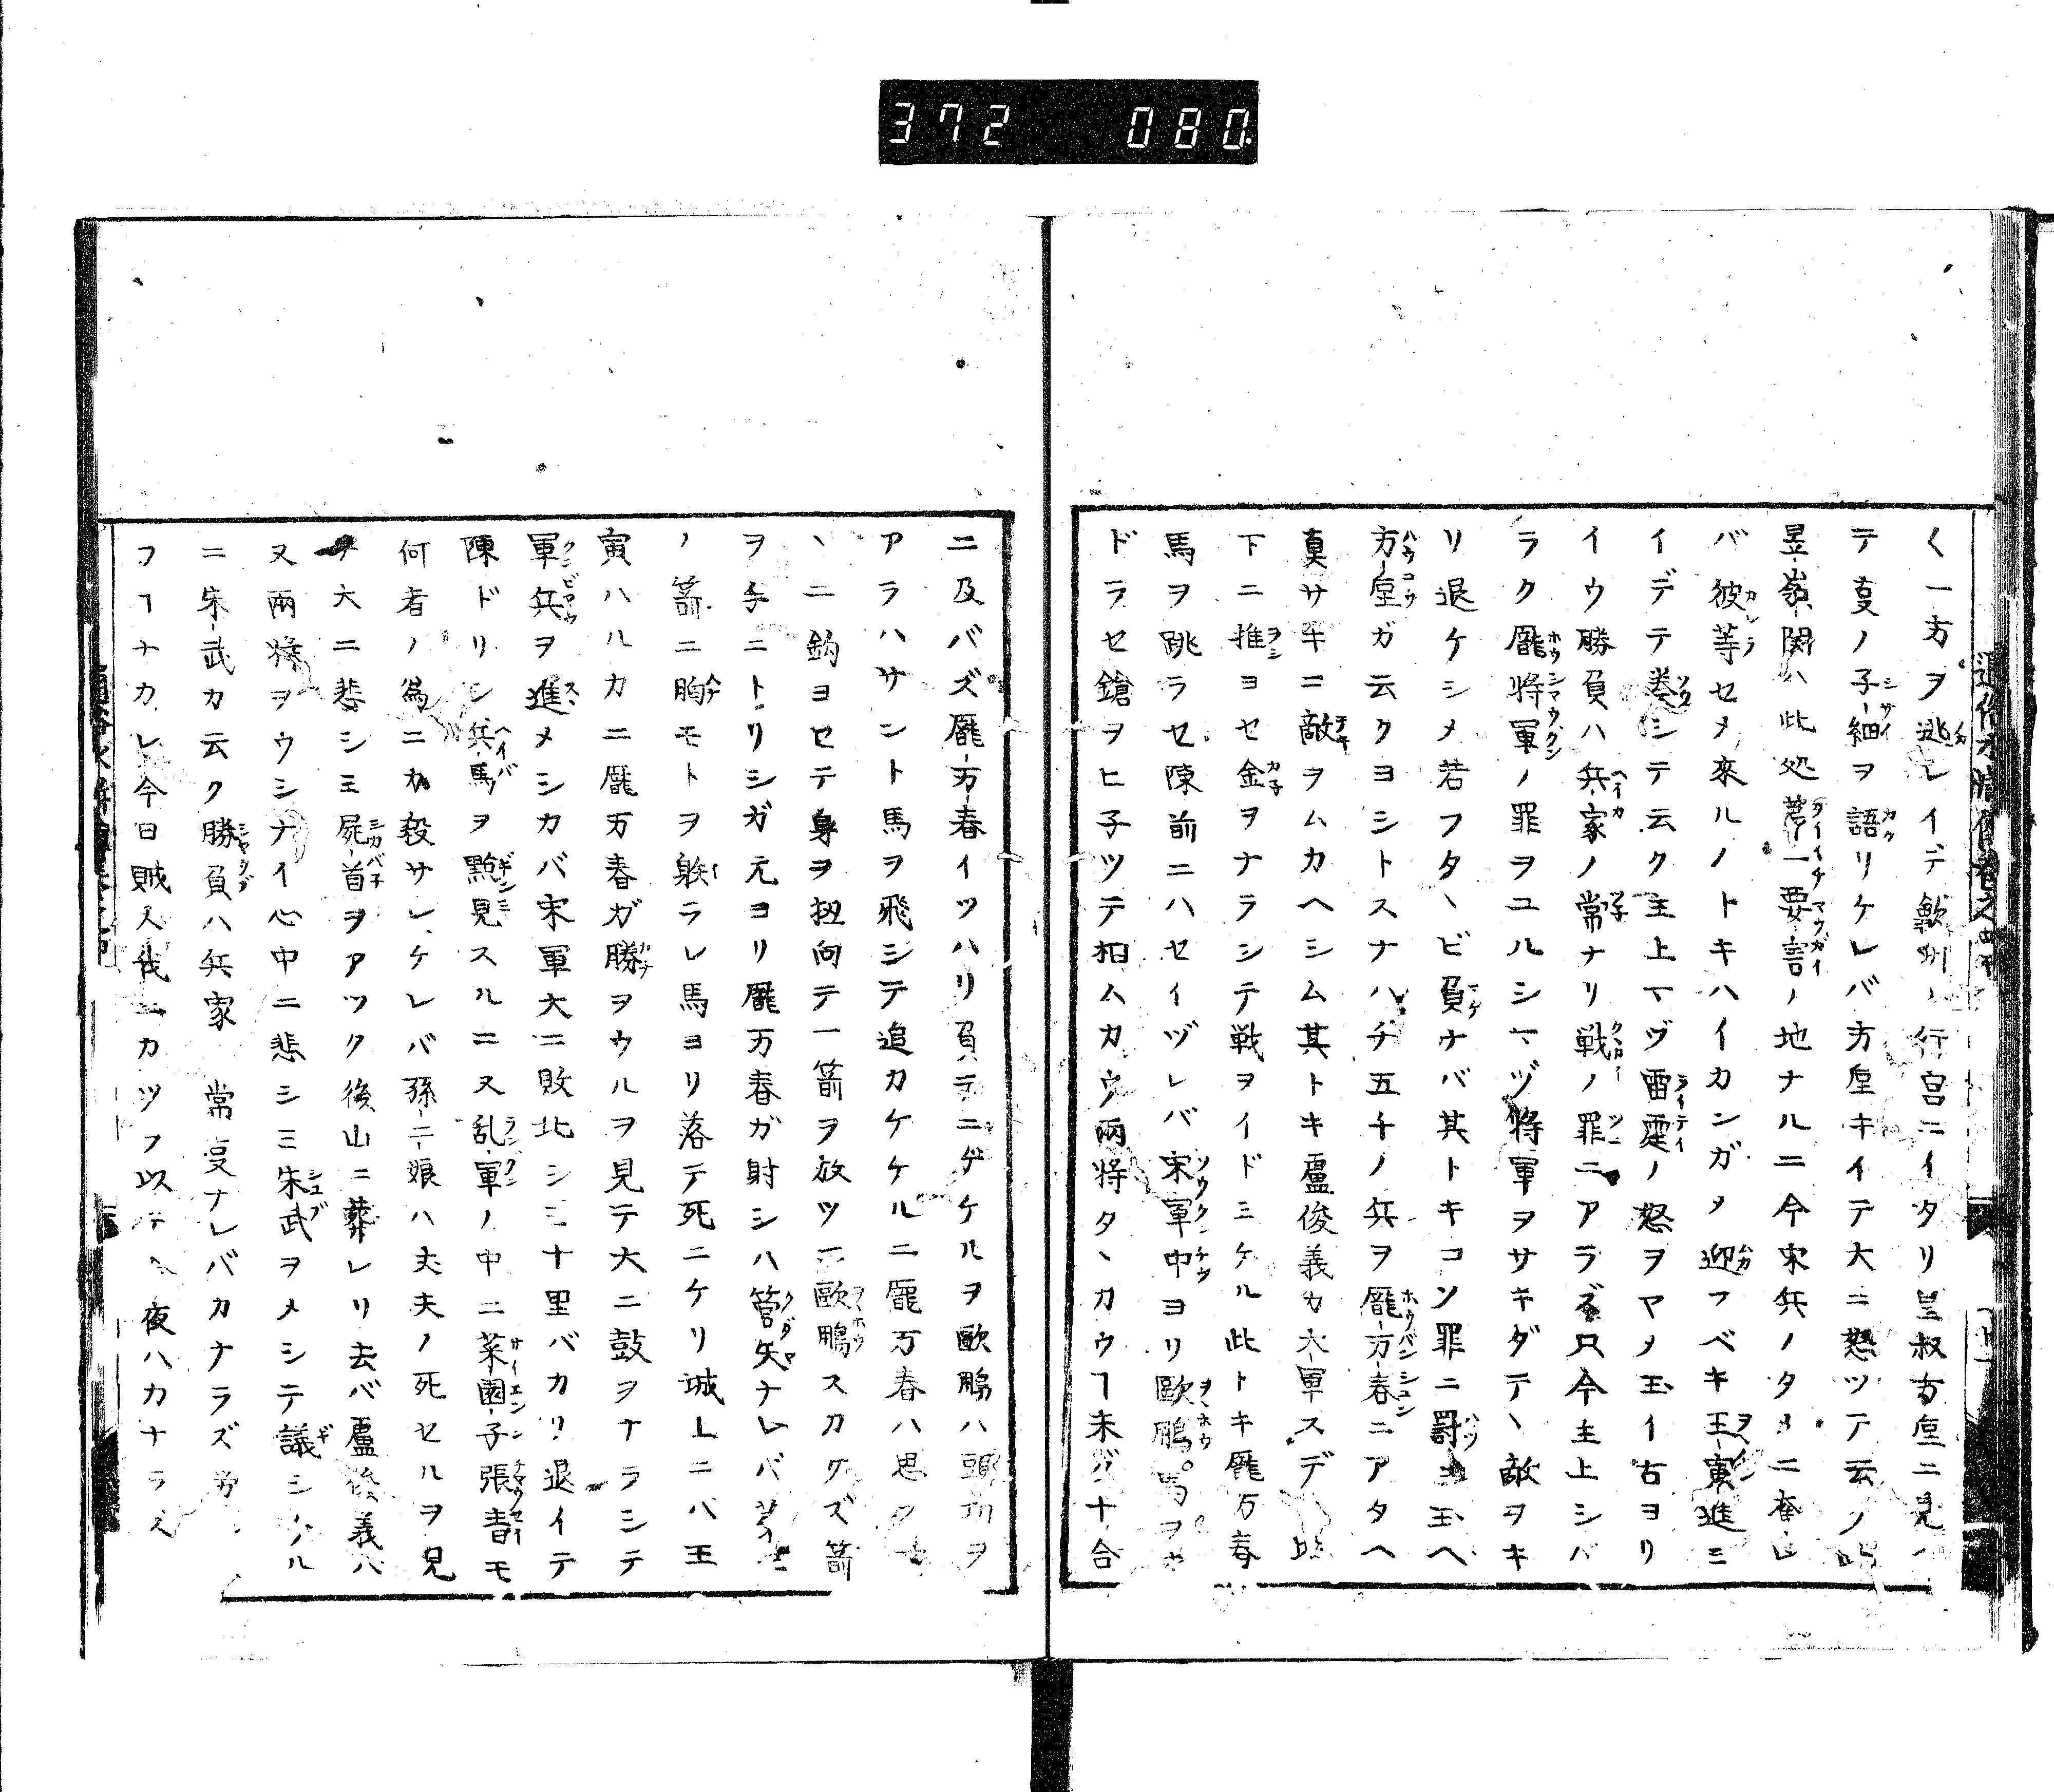 372 080.
通俗水滸傳卷之四十
ク一方ヲ逃レイデ歙州ノ行宮ニイタリ皇叔方垕ニ見ヘ
テ叓ノ子細ヲ語リケレバ方垕キイテ大ニ怒ツテ云ク
昱嶺関ハ此処第一要害ノ地ナルニ今宋兵ノタメニ奪レ
バ彼等セメ來ルノトキハイカンガメ迎フベキ王寅進ミ
イデテ奏シテ云ク主上マヅ雷霆ノ怒ヲヤメ玉イ古ヨリ
イウ勝負ハ兵家ノ常ナリ戦ノ罪ニアラズ只今主上シバ
ラク龐将軍ノ罪ヲユルシマヅ将軍ヲサキダテヽ敵ヲキ
リ退ケシメ若フタヽビ負ナバ其トキコソ罪ニ罰シ玉ヘ
方垕ガ云クヨシトスナハチ五千ノ兵ヲ龐万春ニアタヘ
真サキニ敵ヲムカヘシム其トキ盧俊義カ大軍スデ
下ニ推ヨセ金ヲナラシテ戦ヲイドミケル此トキ龐万春
馬ヲ跳ラセ陳前ニハセイヅレバ宋軍中ヨリ歐鵬馬ヲヤ
ドラセ鎗ヲヒ子ツテ相ムカウ両将タヽカウヿ未ダ十合
ニ及バズ龐万春イツハリ負テニゲケルヲ歐鵬ハ頭功ヲ
アラハサント馬ヲ飛シテ追カケケルニ龐万春ハ思ク
ヽニ鈎ヨセテ身ヲ扭向テ一箭ヲ放ツニ歐鵬スカサズ箭
ヲ手ニトリシガ元ヨリ龐万春ガ射シハ管矢ナレバ
ノ箭ニ胸モトヲ躲ラレ馬ヨリ落テ死ニケリ城上ニハ王
寅ハルカニ龐万春ガ勝ヲウルヲ見テ大ニ鼓ヲナラシテ
軍兵ヲ進メシカバ宋軍大ニ敗北シ三十里バカリ退イテ
陳ドリシ兵馬ヲ點見スルニ又乱軍ノ中ニ菜園子張青モ
何者ノ為ニカ殺サレケレバ孫二娘ハ丈夫ノ死セルヲ見
テ大ニ悲シミ屍首ヲアツク後山ニ葬レリ去バ盧俊義ハ
又兩将ヲウシナイ心中ニ悲シミ朱武ヲメシテ議シケル
ニ朱武カ云ク勝負ハ兵家常叓ナレバカナラズ労
フヿナカレ今日賊人我ニカツヲ以テ、夜ハカナラス